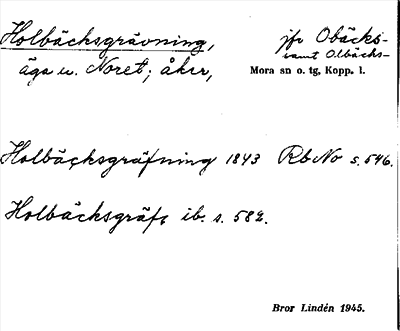 Holbäcksgrävning, jfr Obäcks-
samt Olbäcks-
äga u. Noret; åker, Mora sn o. tg, Kopp. l.
Holbäcksgräfning 1843 Rb No s. 546.
Holbäcksgräft ib. s. 582.
Bror Lindén 1945.